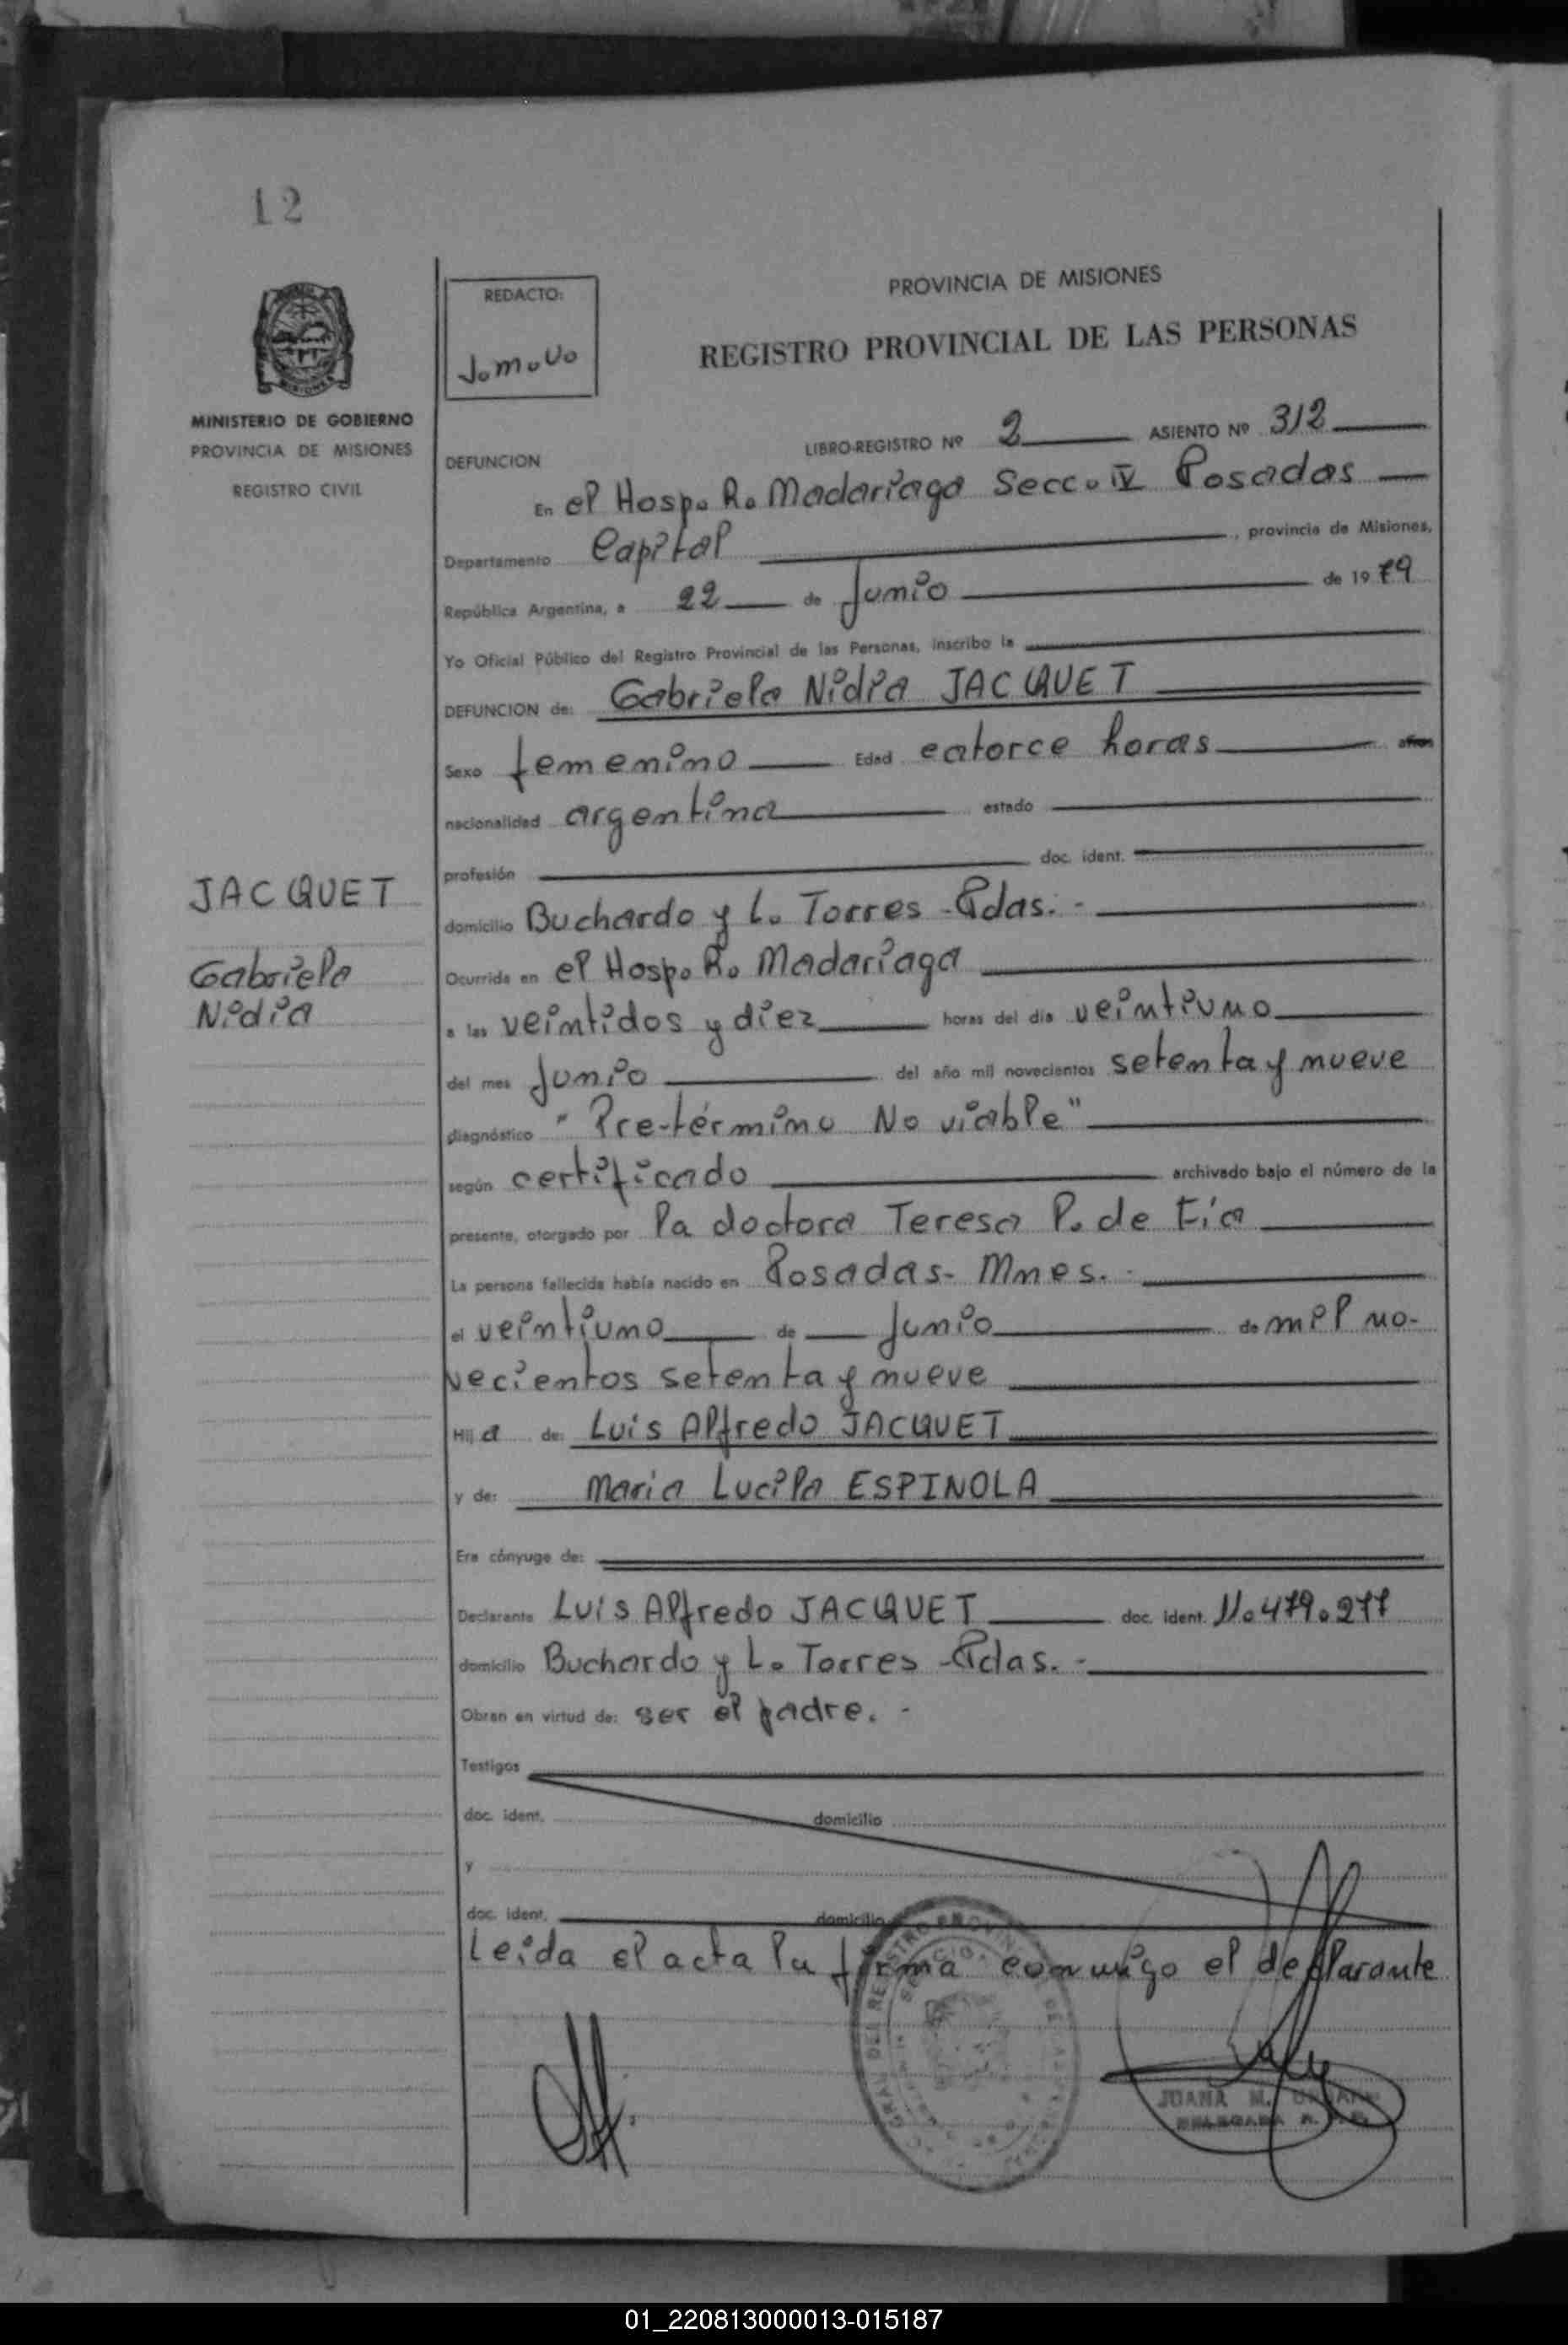 12
PROVINCIA DE MISIONES
REGISTRO PROVINCIAL DE LAS PERSONAS
MINISTERIO DE GOBIERNO
PROVINCIA DE MISIONES
REGISTRO CIVIL
REDACTO:
J.m.v.
LIBRO-REGISTRO Nº 2 ASIENTO Nº 312
DEFUNCION
En el Hosp. R. Madariaga Secc. IV Posadas
Departamento Capital, provincia de Misiones,
República Argentina, a 22 de Junio de 1979
Yo Oficial Público del Registro Provincial de las Personas, inscribo la
DEFUNCION de: Gabriela Nidia JACQUET
Sexo femenino Edad catorce horas años
nacionalidad argentina estado
profesión doc. ident.
domicilio Buchardo y L. Torres - Pdas. -
Ocurrida en el Hosp. R. Madariaga
a las veintidos y diez horas del día veintiuno
del mes Junio del año mil novecientos setenta y nueve
diagnóstico "Pre-término No viable"
según certificado archivado bajo el número de la
presente, otorgado por la doctora Teresa P. de
La persona fallecida había nacido en Posadas - Mnes. -
el veintiuno de Junio de mil no-
vecientos setenta y nueve
Hija de: Luis Alfredo JACQUET
y de: Maria Lucila ESPINOLA
Era cónyuge de:
Declarante Luis Alfredo JACQUET doc. ident. 11.479.277
domicilio Buchardo y L. Torres - Pdas. -
Obran en virtud de: ser el padre. -
Testigos
doc. ident. domicilio
y
doc. ident. domicilio
Leida el acta la firma conmigo el declarante
JACQUET
Gabriela
Nidia
JUANA M.
DELEGADA
01_220813000013-015187